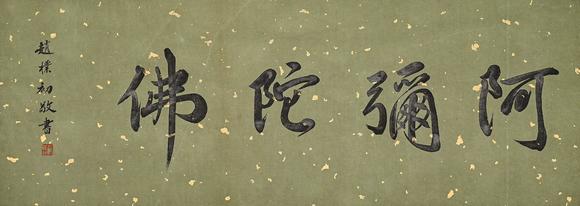 阿彌陀佛
趙樸初敬書